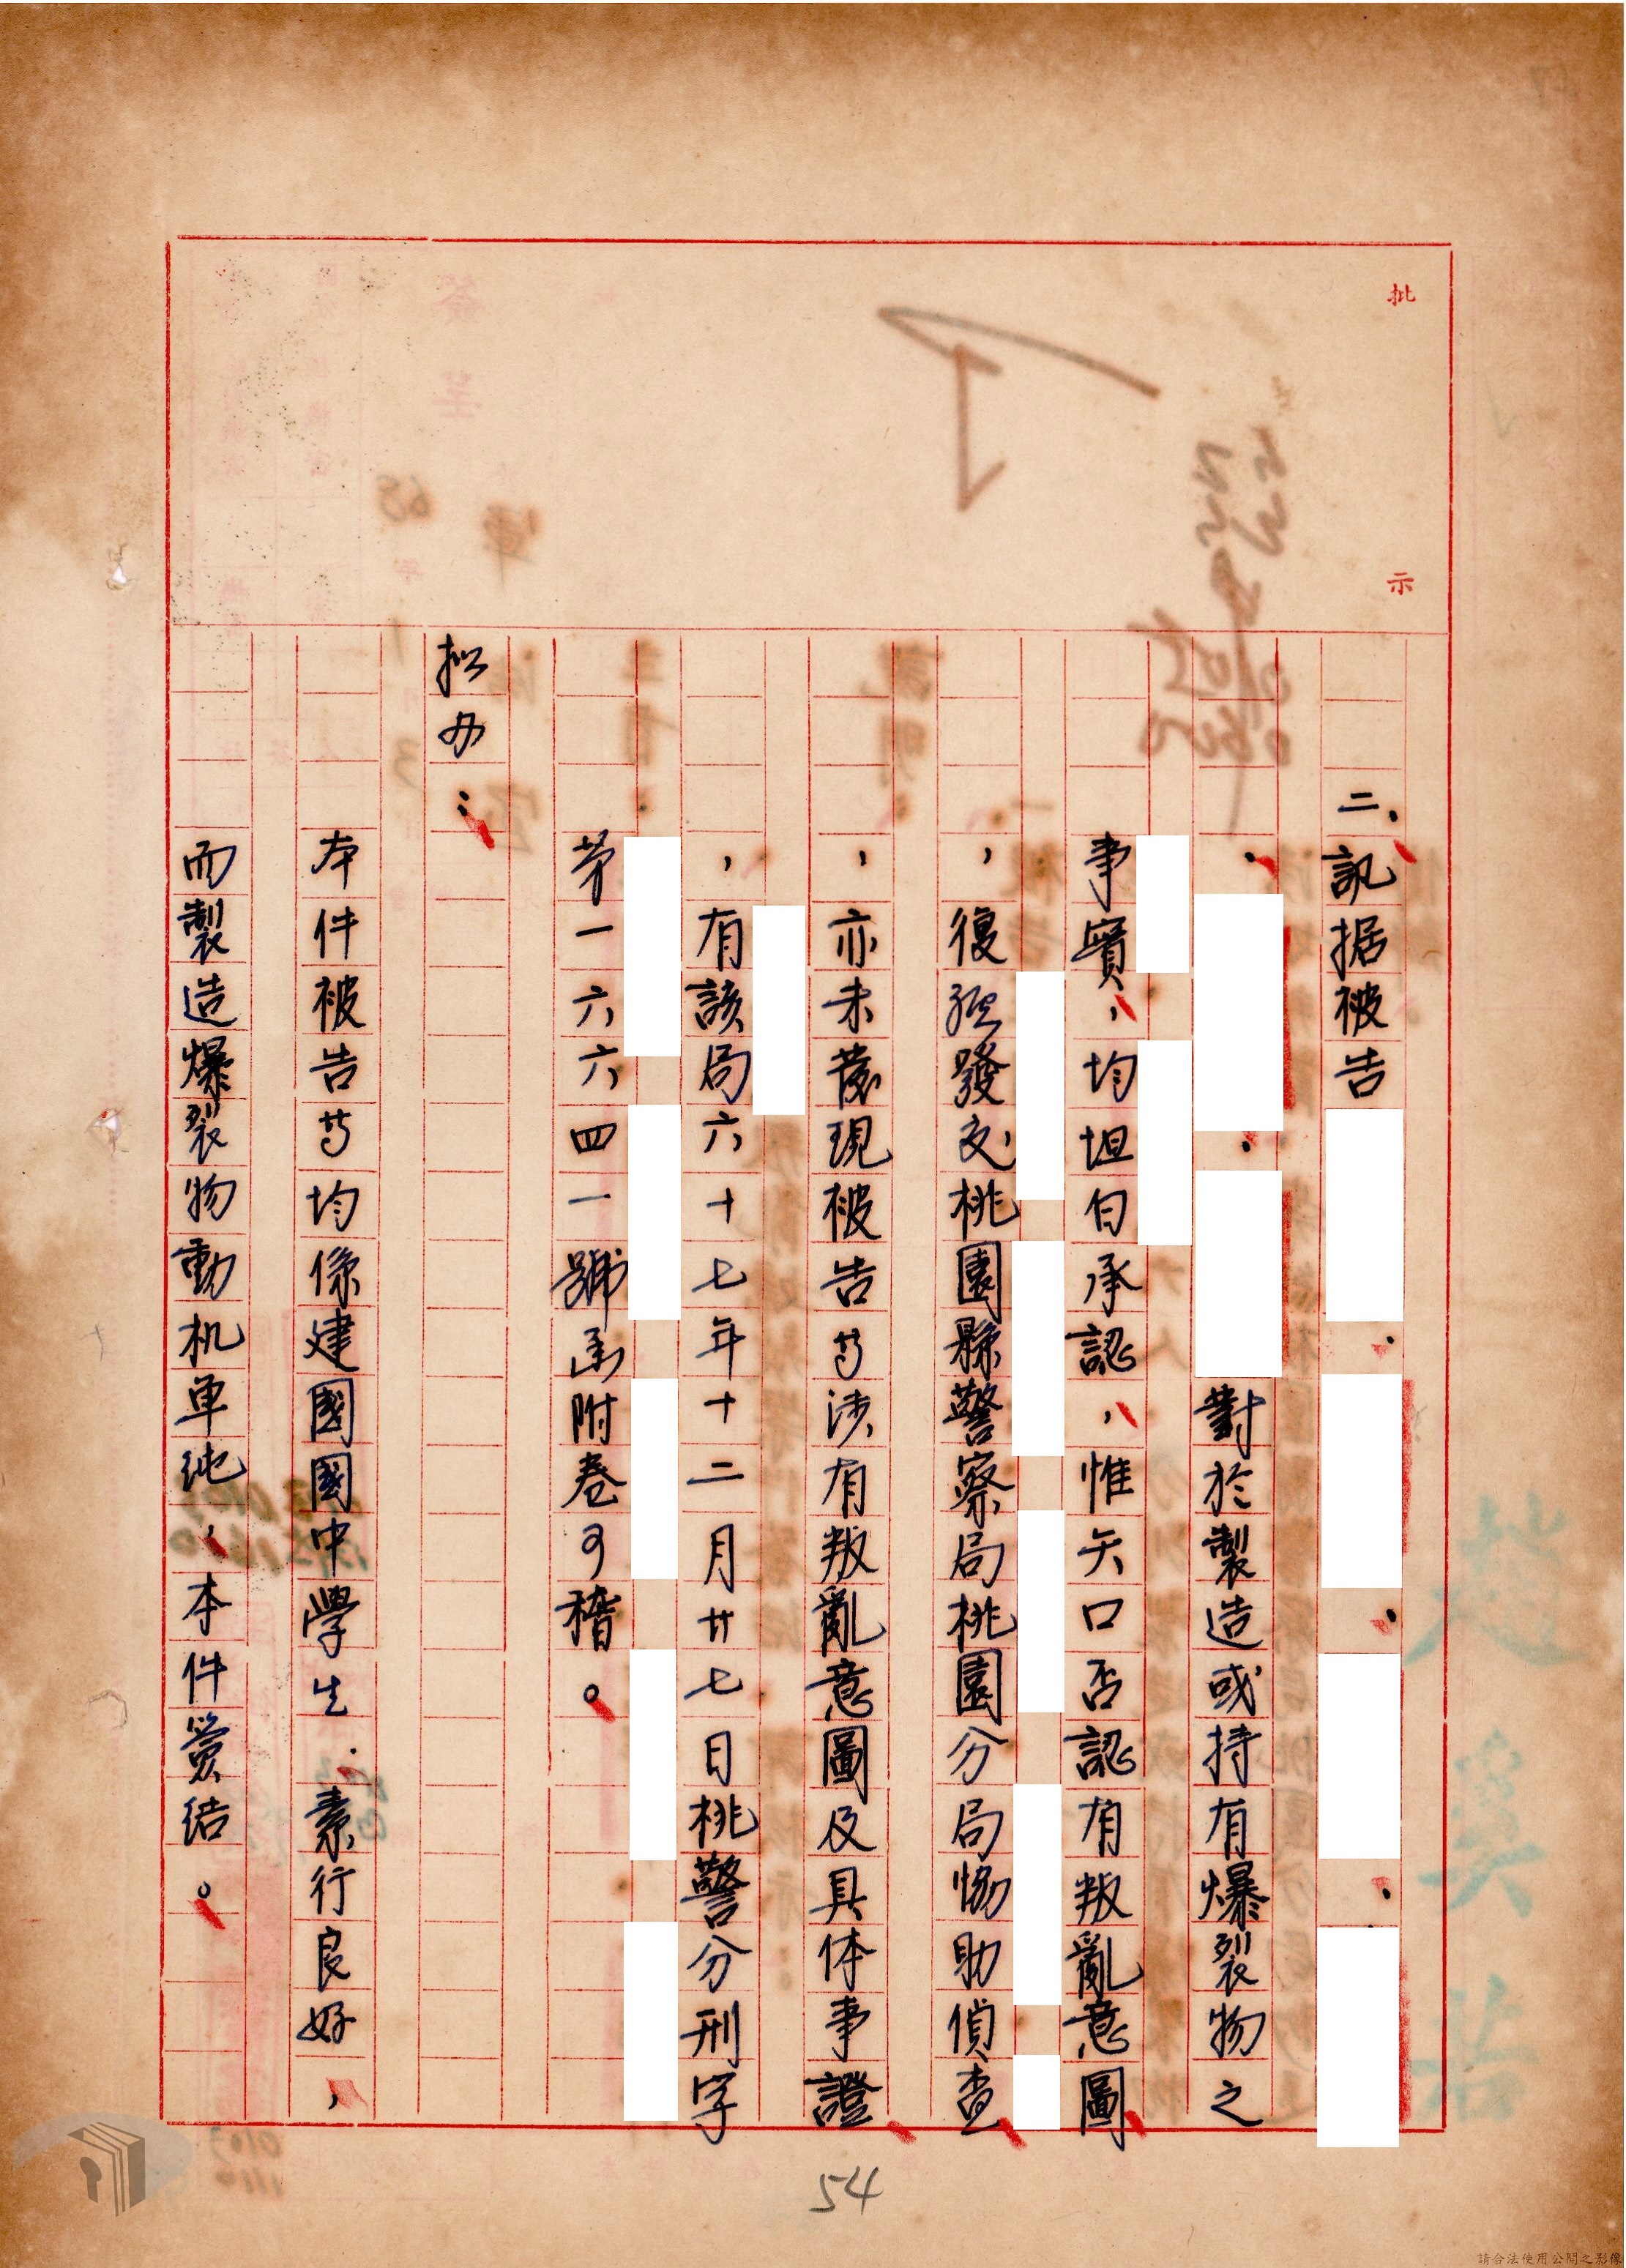 批示
二、訊据被告
對於製造或持有爆裂物之
事實，均坦白承認，惟矢口否認有叛亂意圖
，復經發交桃園縣警察局桃園分局協助偵查
，亦未發現被告等涉有叛亂意圖及具体事證
，有該局六十七年十二月廿七日桃警分刑字
第一六六四一號函附卷可稽。
拟办：
本件被告等均係建國國中學生．素行良好，
而製造爆裂物動机单純，本件簽結。
54
請合法使用公開之影像